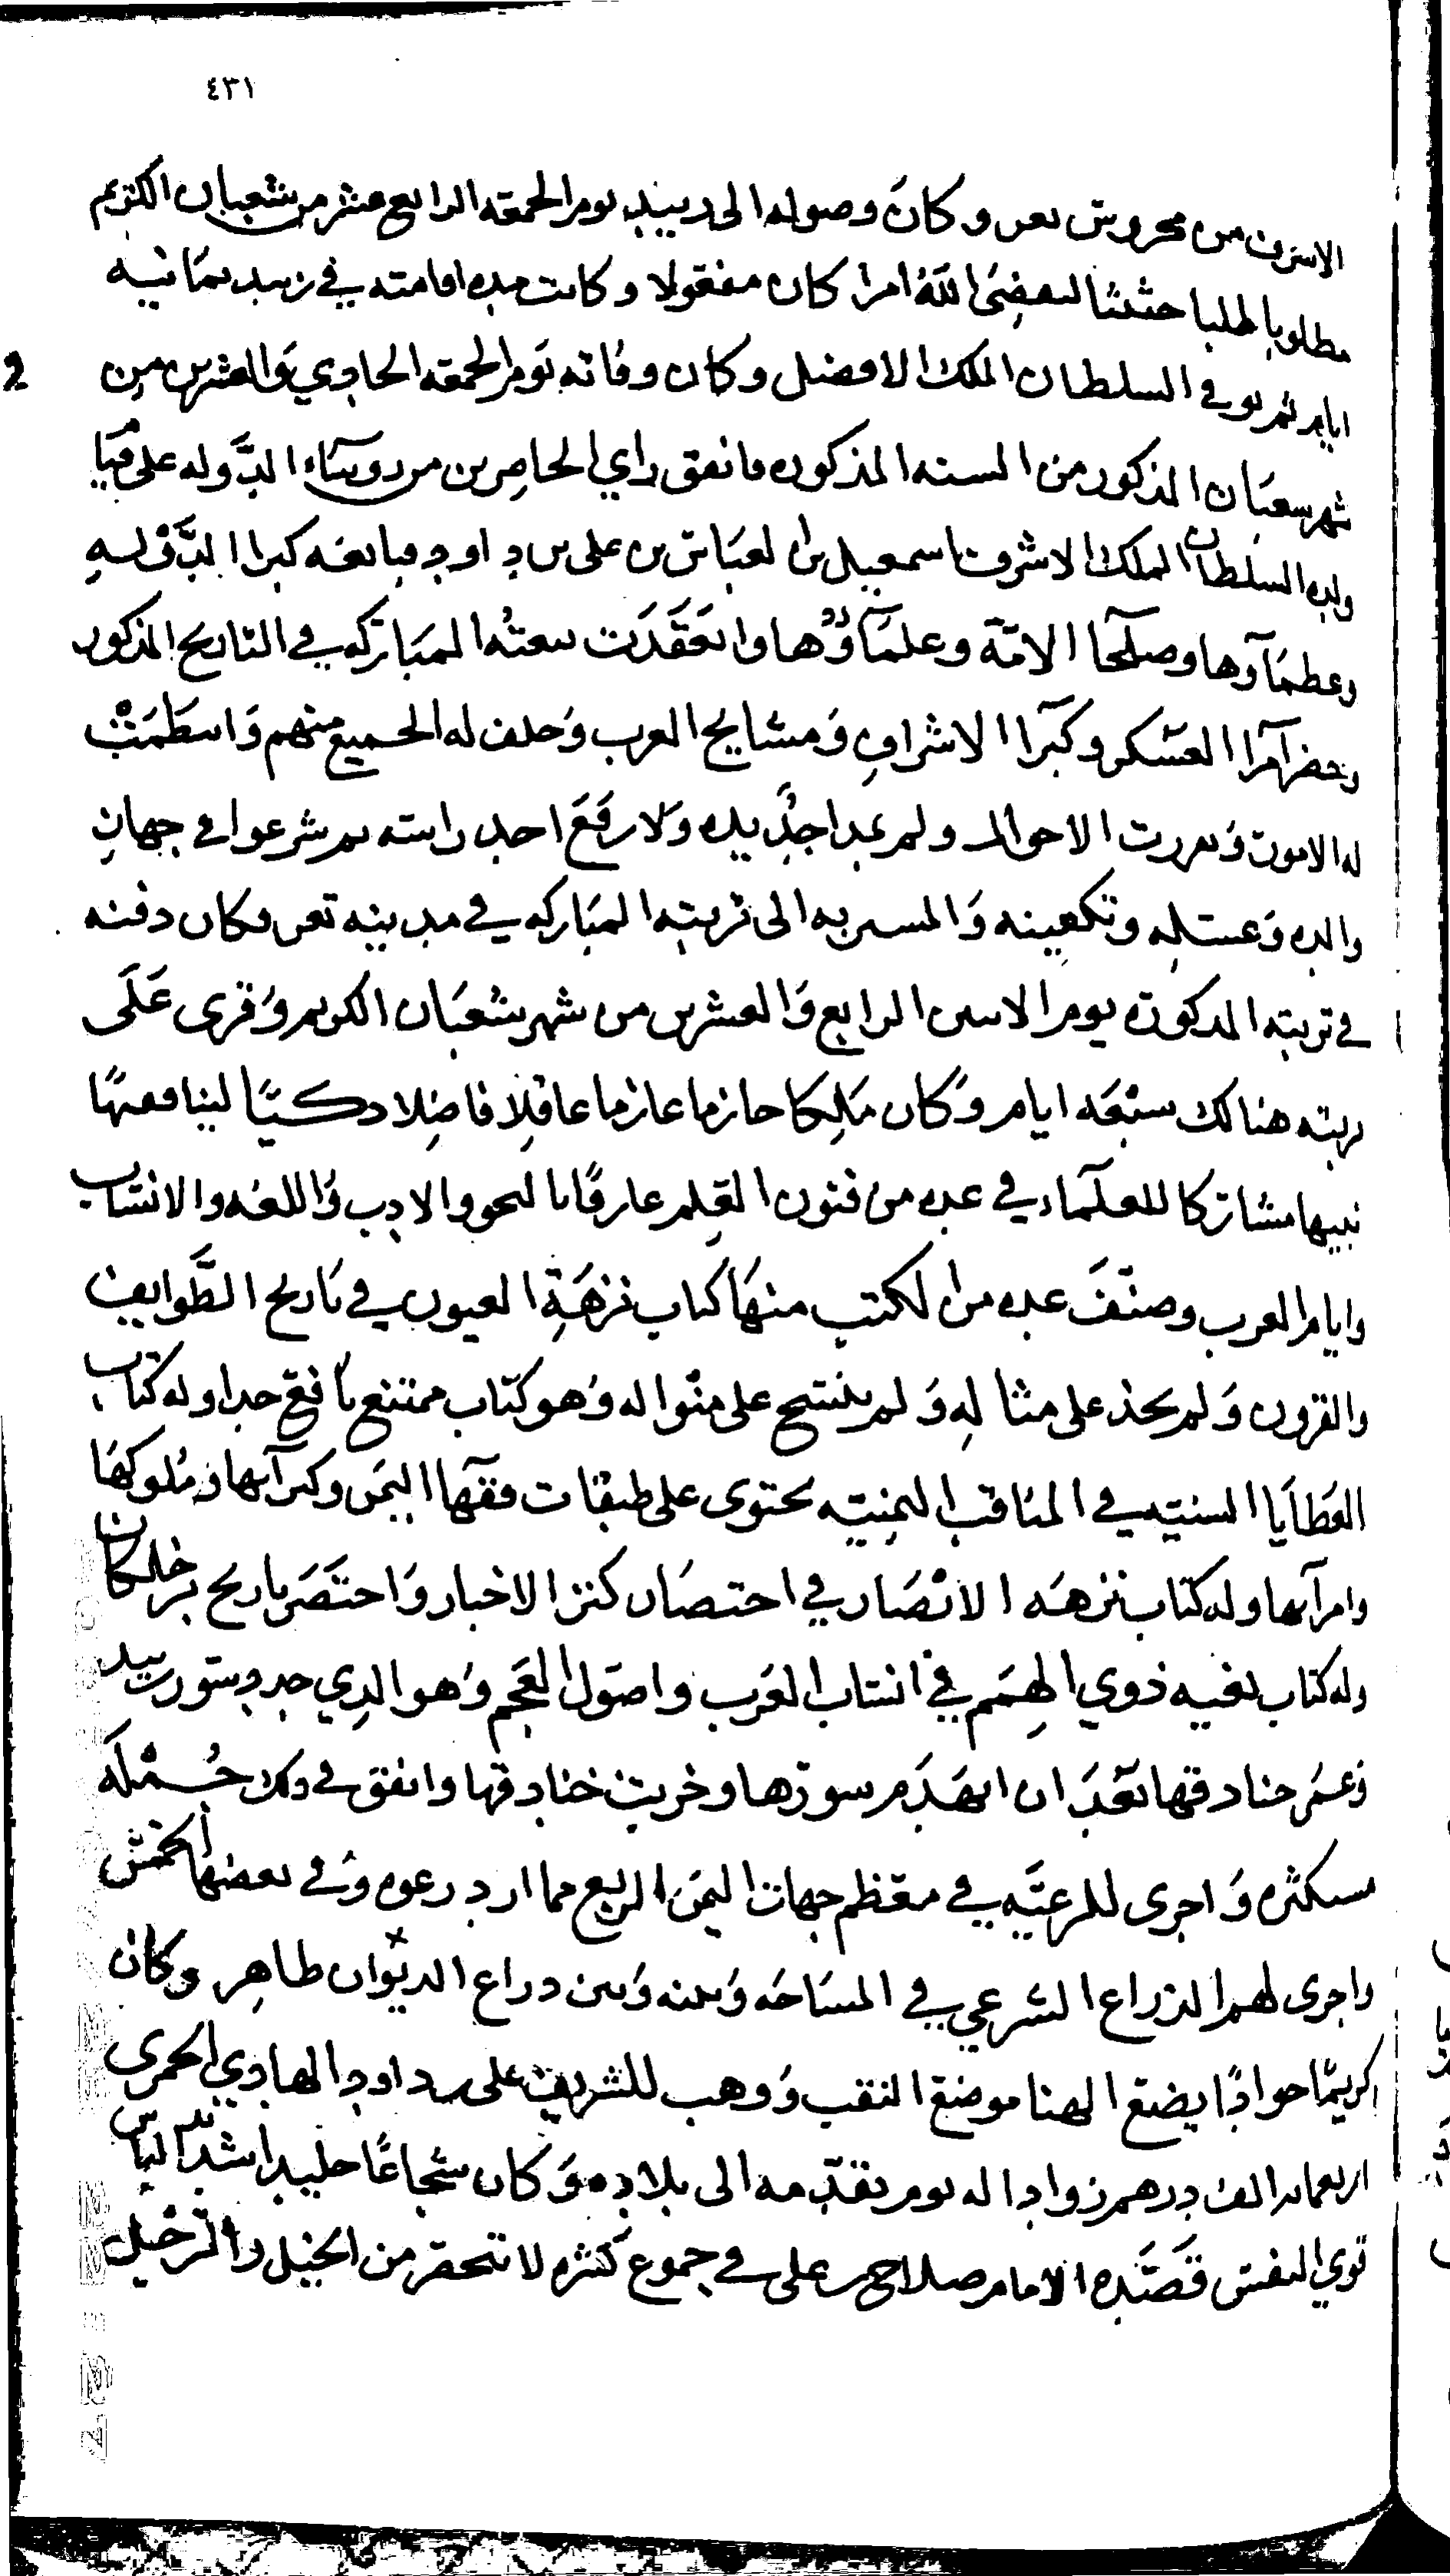 ٤٣١
الاشرف من محروس تعز وكان وصوله الى زبيد يوم الجمعه الرابع عشر من شعبان الكريم
مطلوبا طلبا حثيثا ليقضي الله امرا كان مفعولا وكانت مده اقامته في زبيد ثمانيه
ايام ثم توفي السلطان الملك الافضل وكان وفاته يوم الجمعه الحادي والعشرين من
شهر شعبان المذكور من السنه المذكوره فاتفق راي الحاضرين من روساء الدوله على قيام
ولده السلطان الملك الاشرف اسمعيل بن العباس بن علي بن داود فبايعه كبرا الدوله
وعظماؤها وصلحا الامة وعلماؤها وانعقدت بيعته المباركه في التاريخ المذكور
وحضر امرا العسكر وكبرا الاشراف ومشايخ العرب وحلف له الجميع منهم وانتظمت
له الامور وتقررت الاحوال ولم يمد احد يده ولا رفع احد راسه ثم شرعوا في جهاز
والده وغسله وتكفينه والمسير به الى تربته المباركه في مدينه تعز وكان دفنه
في تربته المذكورة يوم الاثنين الرابع والعشرين من شهر شعبان الكريم وقرى على
تربته هنالك سبعه ايام وكان ملكا حازما عازما عاقلا فاضلا ذكيا لبيبا فقيها
نبيها مشاركا للعلماء في عده من فنون العلم عارفا بالنحو والادب واللغه والانساب
وايام العرب وصنف عده من الكتب منها كتاب نزهة العيون في تاريخ الطوايف
والقرون ولم يحذ على مثاله ولم ينسج على منواله وهو كتاب ممتنع نافع جدا وله كتاب
العطايا السنيه في المناقب اليمنيه يحتوى على طبقات فقها اليمن وكبرآيها وملوكها
وامرآيها وله كتاب نزهه الابصار في اختصار كنز الاخبار واختصر تاريخ بن خلكان
وله كتاب بغيه ذوي الهمم في انساب العرب واصول العجم وهو الذي جدد سور زبيد
وعمر خنادقها بعد ان انهدم سورها وخربت خنادقها وانفق في ذلك جمله
مستكثره واجرى للرعيه في معظم جهات اليمن الربع مما ازدرعوه وفي بعضها الخمس
واجرى لهم الذراع الشرعي في المساحه وبينه وبين ذراع الديوان ظاهر وكان
كريما جوادا يضع الهنا موضع النقب ووهب للشريف علي بن داود الهادي الحمزى
اربعمايه الف درهم زوادا له يوم تقدمه الى بلاده وكان شجاعا جليدا شديد الباس
قوي النفس قصده الامام صلاح بن علي في جموع كثره لا تنحصر من الخيل والرجل